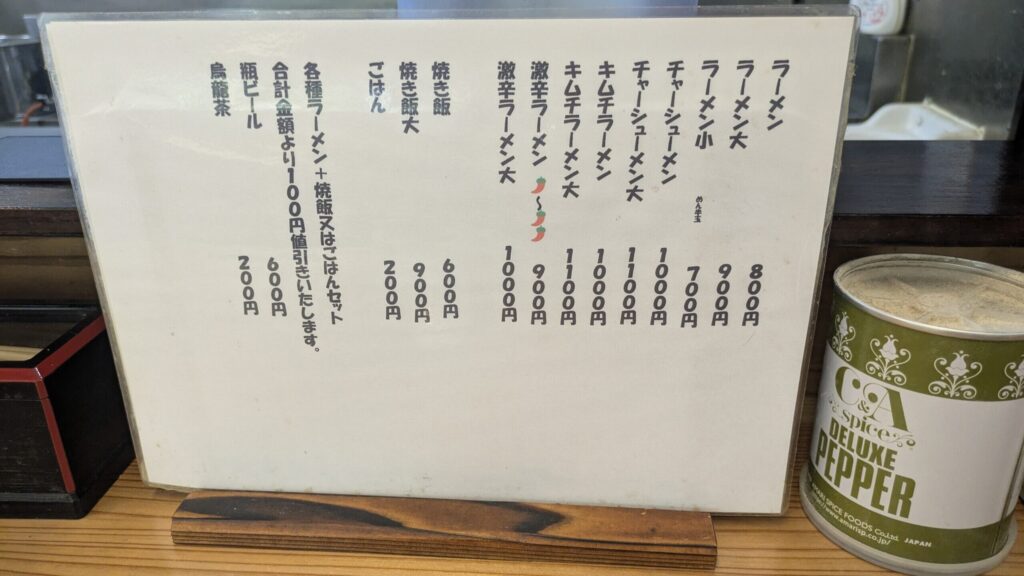 ラーメン 800円
ラーメン大 900円
ラーメン小 めん半玉 700円
チャーシューメン 1000円
チャーシューメン大 1100円
キムチラーメン 1000円
キムチラーメン大 1100円
激辛ラーメン 🌶～🌶🌶 900円
激辛ラーメン大 1000円
焼き飯 600円
焼き飯大 900円
ごはん 200円
各種ラーメン＋焼飯又はごはんセット
合計金額より100円値引きいたします。
瓶ビール 600円
烏龍茶 200円
C&A
& spice
DELUXE
PEPPER
SPICE FOODS Co.,Ltd. JAPAN